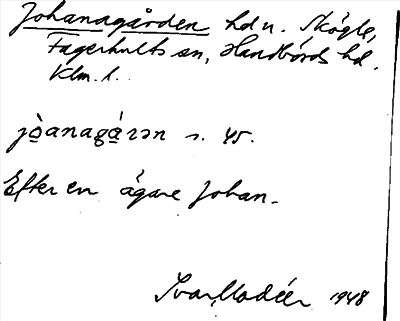 Johanagården hd u. Skögle,
Fagerhults sn, Handbörds hd.
Klm. l.
jòanagáրən s. 45.
Efter en ägare Johan.
Ivar Modéer 1948